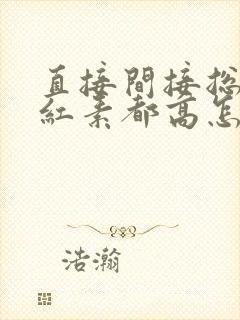 直接間接总
紅素都高怎
浩瀚